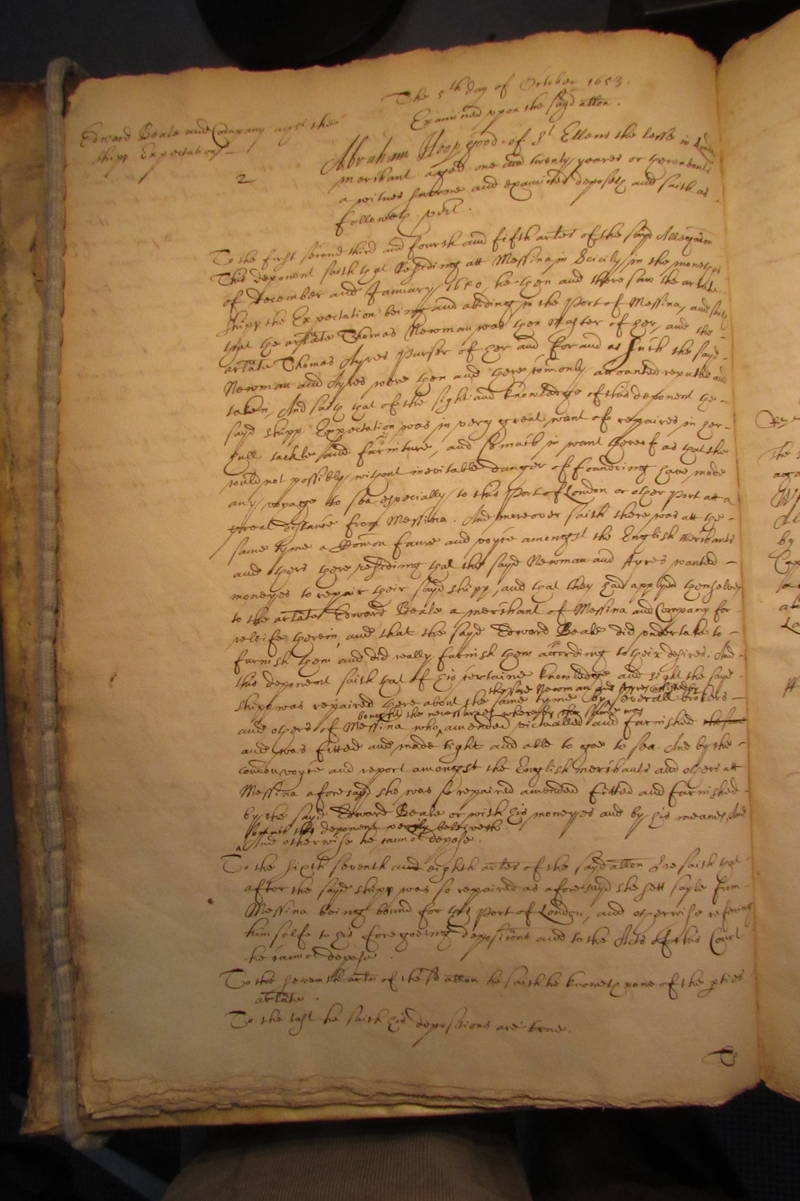 The 5th day of October 1653.
Examined upon the sayd allon.
Edward Beale and Company agst the
shipp Expectation
2
Abraham Hoopgood of St Ellens the lesse in
merchant aged one and twenty yeares or thereabouts
a witnes sworne and examined deposeth and saith as
followeth vizt.
To the first second third and fourth and fifth artles of the sayd Allegation
This deponent saith that residing att Messina in Sicily in the moneths
of December and January 1650 he then and there saw the artlate
shipp the Expectation being and abiding in the Port of Messina, and saith
that the artlate Thomas Newman was then Master of her, and the
artlate Thomas Ayres Purser of her and for and as such the sayd
Newman and Ayres were then and there comonly accounted reputed and
taken, And saith that of the sight and knowledge of this deponent the
sayd shipp Expectation was in very great want of repaires in her
hull tackle and furniture, and so much in want thereof as that she
could not possibly without inevitable danger of foundering have made
any voyage to sea especially to this Port of London or other port att a
great distance from Messina. And moreover saith there was att the
same tyme a Comon fame and voyce amongst the English merchants
and others there residing that the sayd Newman and Ayres wanted
moneyes to repair their sayd shipp, and that they had applyed themselves
to the artlate Edward Beale a merchant of Messina and Company for
releife therein, and that the sayd Edward Beale did undertake to
furnish them and did really furnish them according to their desires. And
this deponent saith that of his certaine knowledge and sight the sayd
the sayd Newman and Ayres
shipp was repaired there about the same tyme by severall
bought the necessaries whereof the shipp was
and others of Messina who amended victualled and furnished
and was fitted and made tight and able to goe to sea. And by the
comon voyce and report amongst the English merchants and others att
Messina aforesayd she was so repaired amended fitted and furnished
by the sayd Edward Beale or with his moneyes and by his meanes, And
soe much this deponent verily beleeveth
And otherwise he cannot depose.
To the sixth seventh and eighth artles of the sayd allon hee saith that
after the sayd shipp was so repaired as aforesayd she sett sayle from
Messina being bound for this Port of London, and otherwise referring
himselfe to his foregoeing depositions and to the Acts of this Court
he cannot depose.
To the seventh artle of the sd allon he saith he knoweth none of the pties
artlate.
To the last he saith his depositions are true.
To